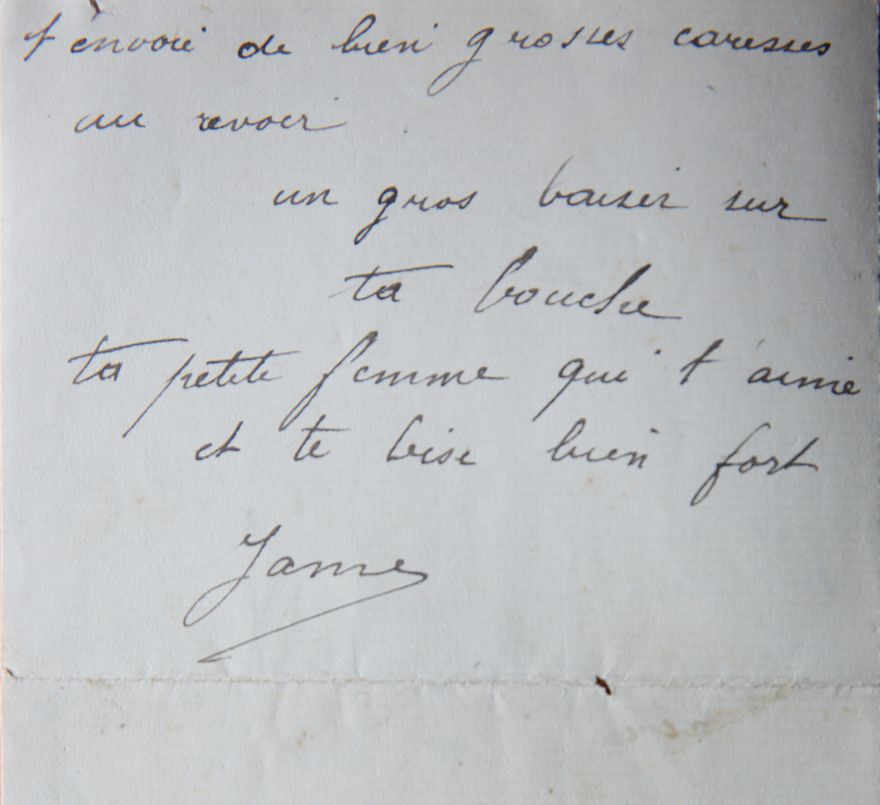 t'envoie de bien grosses caresses
au revoir
un gros baiser sur
ta bouche
ta petite femme qui t'aime
et te bise bien fort